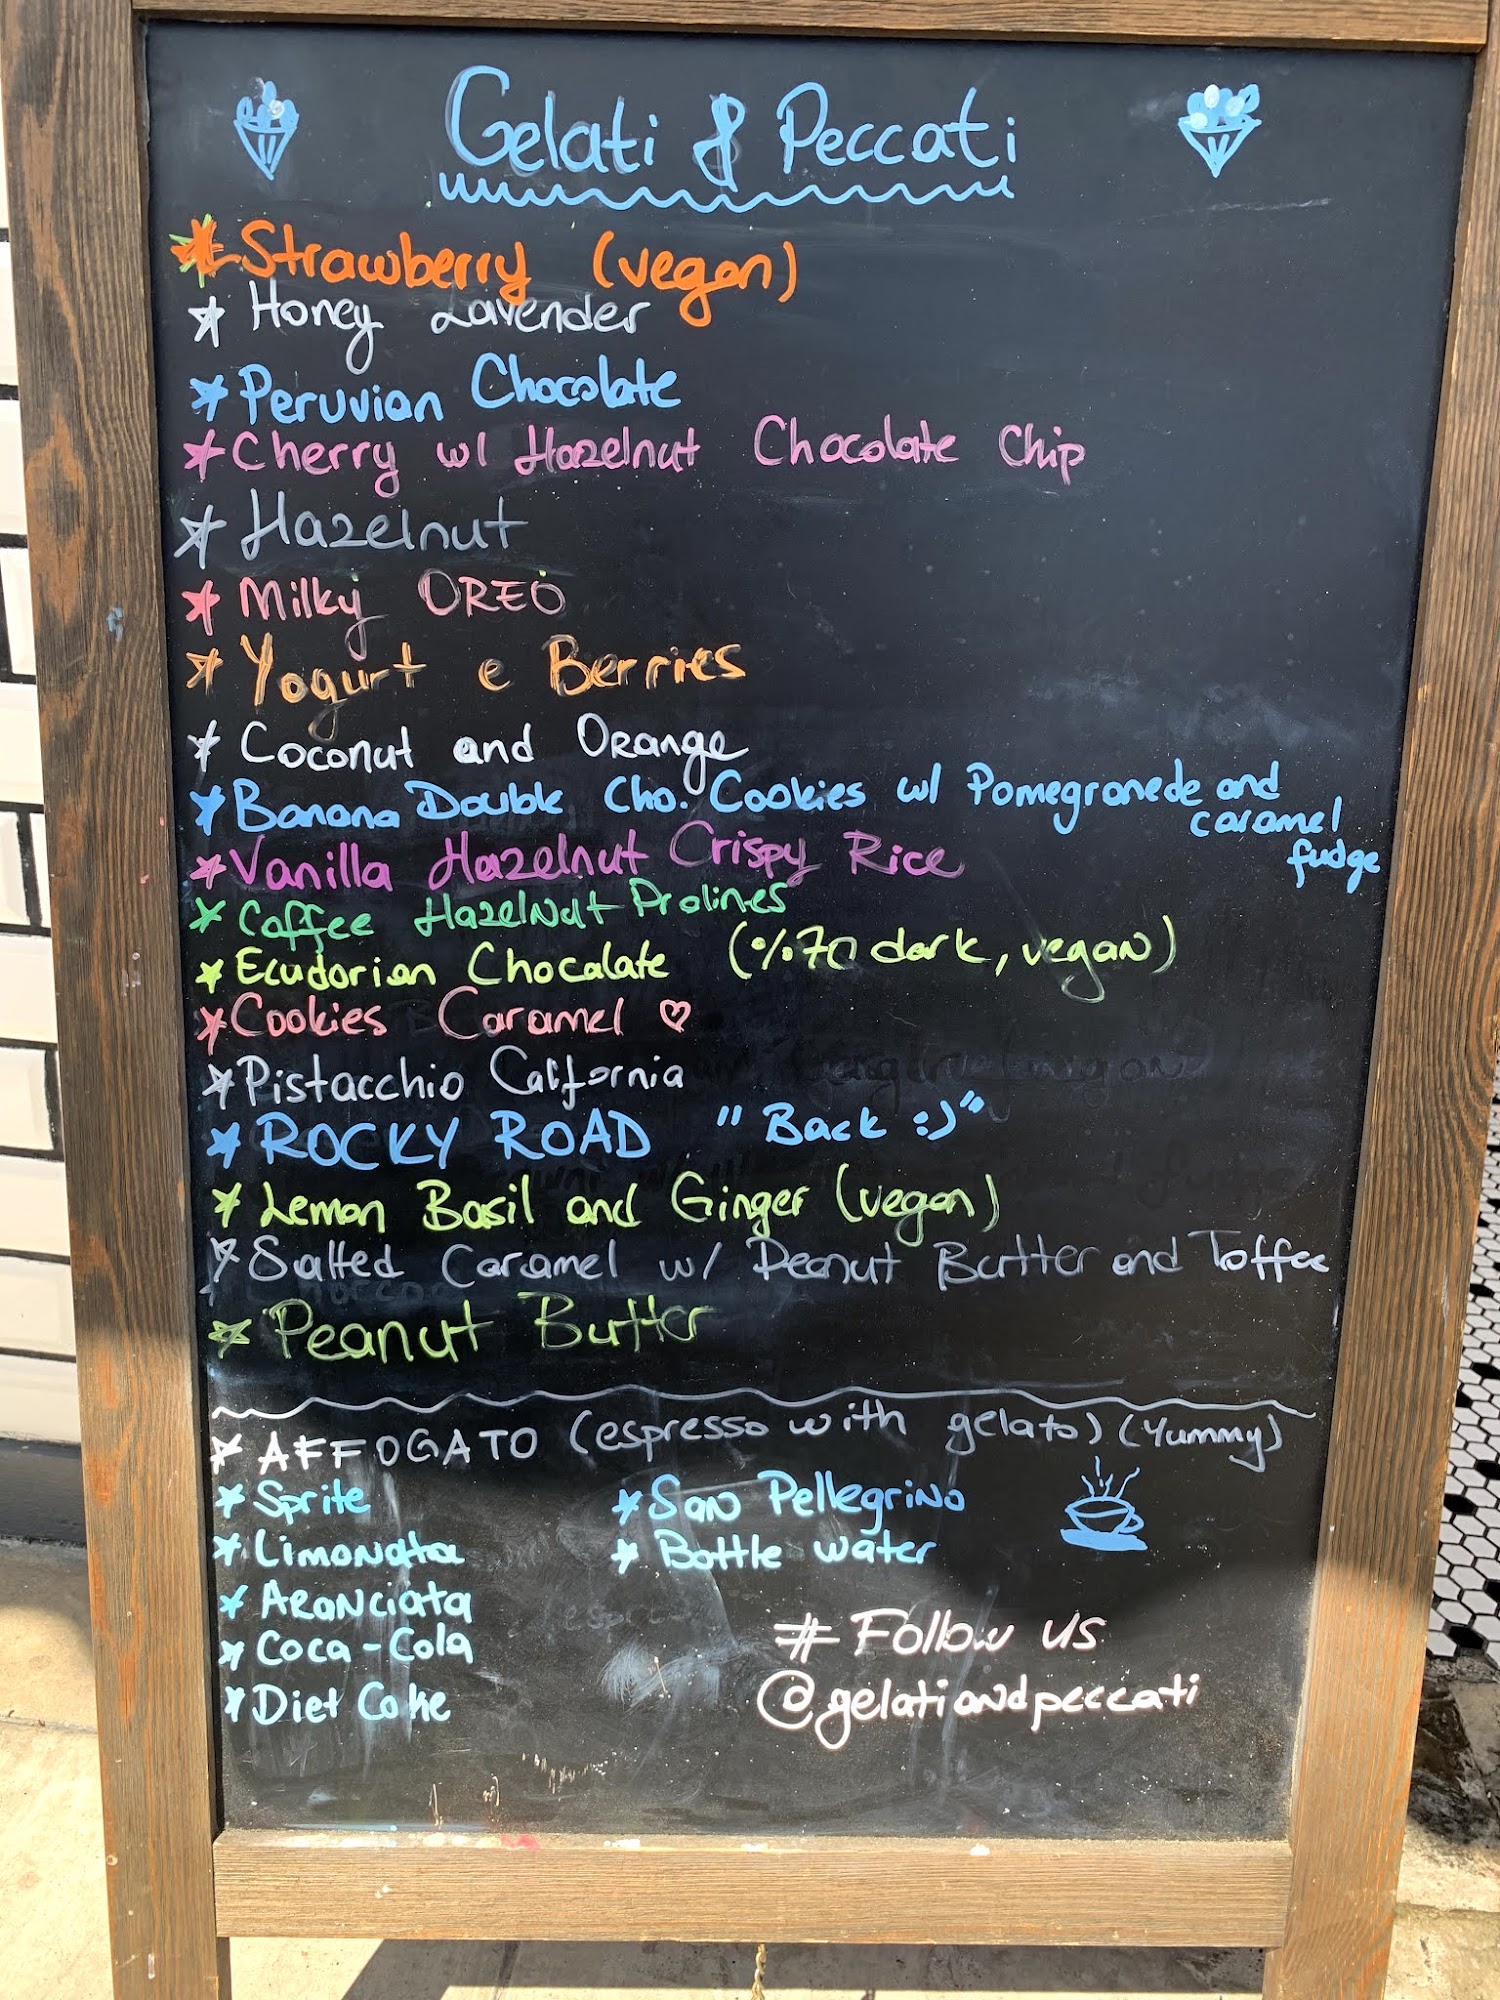 Gelati & Peccati
Strawberry (vegan)
Honey Lavender
Peruvian Chocolate
Cherry w/ Hazelnut Chocolate Chip
Hazelnut
Milky OREO
Yogurt e Berries
Coconut and Orange
Banana Double Cho. Cookies w/ Pomegranede and
caramel
fudge
Vanilla Hazelnut Crispy Rice
Coffee Hazelnut Pralines
Ecudorian Chocalate (%70 dark, vegan)
Cookies Caramel ♡
Pistacchio California
ROCKY ROAD "Back :)"
Lemon Basil and Ginger (vegan)
Salted Caramel w/ Peanut Butter and Toffee
Peanut Butter
AFFOGATO (espresso with gelato) (Yummy)
Sprite
San Pellegrino
Limonata
Bottle water
Aranciata
Coca-Cola
Diet Coke
# Follow us
@gelatiandpeccati